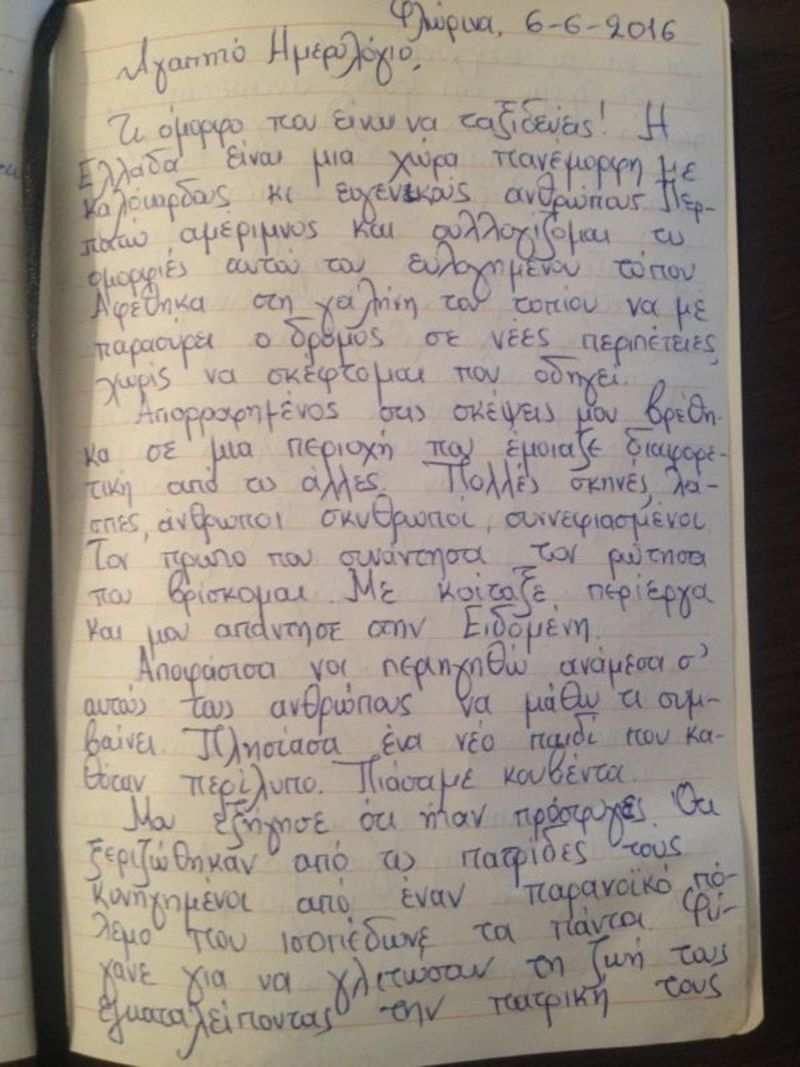 Φλώρινα, 6-6-2016
Αγαπητό Ημερολόγιο,
Τι όμορφο που είναι να ταξιδεύεις! Η
Ελλάδα είναι μια χώρα πανέμορφη με
καλόκαρδους κι ευγενικούς ανθρώπους. Περ-
πατώ αμέριμνος και συλλογίζομαι τις
ομορφιές αυτού του ευλογημένου τόπου
Αφέθηκα στη γαλήνη του τοπίου να με
παρασύρει ο δρόμος σε νέες περιπέτειες,
χωρίς να σκέφτομαι που οδηγεί.
Απορροφημένος στις σκέψεις μου βρέθη-
κα σε μια περιοχή που έμοιαζε διαφορε-
τική από τις άλλες. Πολλές σκηνές, λά-
σπες, άνθρωποι σκυθρωποί, συννεφιασμένοι.
Τον πρώτο που συνάντησα τον ρώτησα
που βρίσκομαι. Με κοίταξε περίεργα
και μου απάντησε στην Ειδομένη.
Αποφάσισα να περιηγηθώ ανάμεσα σ'
αυτούς τους ανθρώπους να μάθω τι συμ-
βαίνει. Πλησίασα ένα νέο παιδί που κα-
θόταν περίλυπο. Πιάσαμε κουβέντα.
Μου εξήγησε ότι ήταν πρόσφυγες. Ότι
ξεριζώθηκαν από τις πατρίδες τους
κυνηγημένοι από έναν παρανοϊκό πό-
λεμο που ισοπέδωνε τα πάντα. Φύ-
γανε για να γλιτώσουν τη ζωή τους
εγκαταλείποντας την πατρική τους